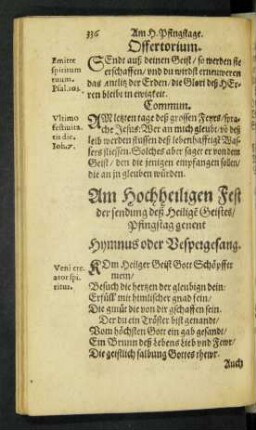 336 Am H. Pfingstage.
Offertorium.
Emitte
spiritum
tuum.
Psal. 103.
SEndt auß deinen Geist/ so werden sie
erschaffen/ vnd du wirdst ernewren
das antlitz der Erden/ die Glori deß HEr-
ren bleibt in ewigkeit.
Commun.
Vltimo
festiuita-
tis die.
Joh. 7.
AM letzten tage deß grossen Feyrs/ spra-
che Jesus/ Wer an mich glaubt/ võ deß
leib werden fliessen deß lebenhafftigẽ Was-
sers fliessen/ Solches aber saget er von dem
Geist/ den die jenigen empfangen sollen/
die an jn glauben würden.
Am Hochheiligen Fest
der sendung deß Heiligẽ Geistes/
Pfingstag genent
Hymnus oder Vespergesang.
Veni cre-
ator spi-
ritus.
KOm Heilger Geist Gott Schöpffer
mein/
Besuch die hertzen der gleubign dein/
Erfüll mit himlischer gnad fein/
Die die von dir gschaffen sein.
Der du ein Tröster bist genandt/
Vom höchsten Gott ein gab gesandt/
Ein Brunn deß Lebens Lieb vnd Fewr/
Die geistlich salbung Gottes thewr.
Auch